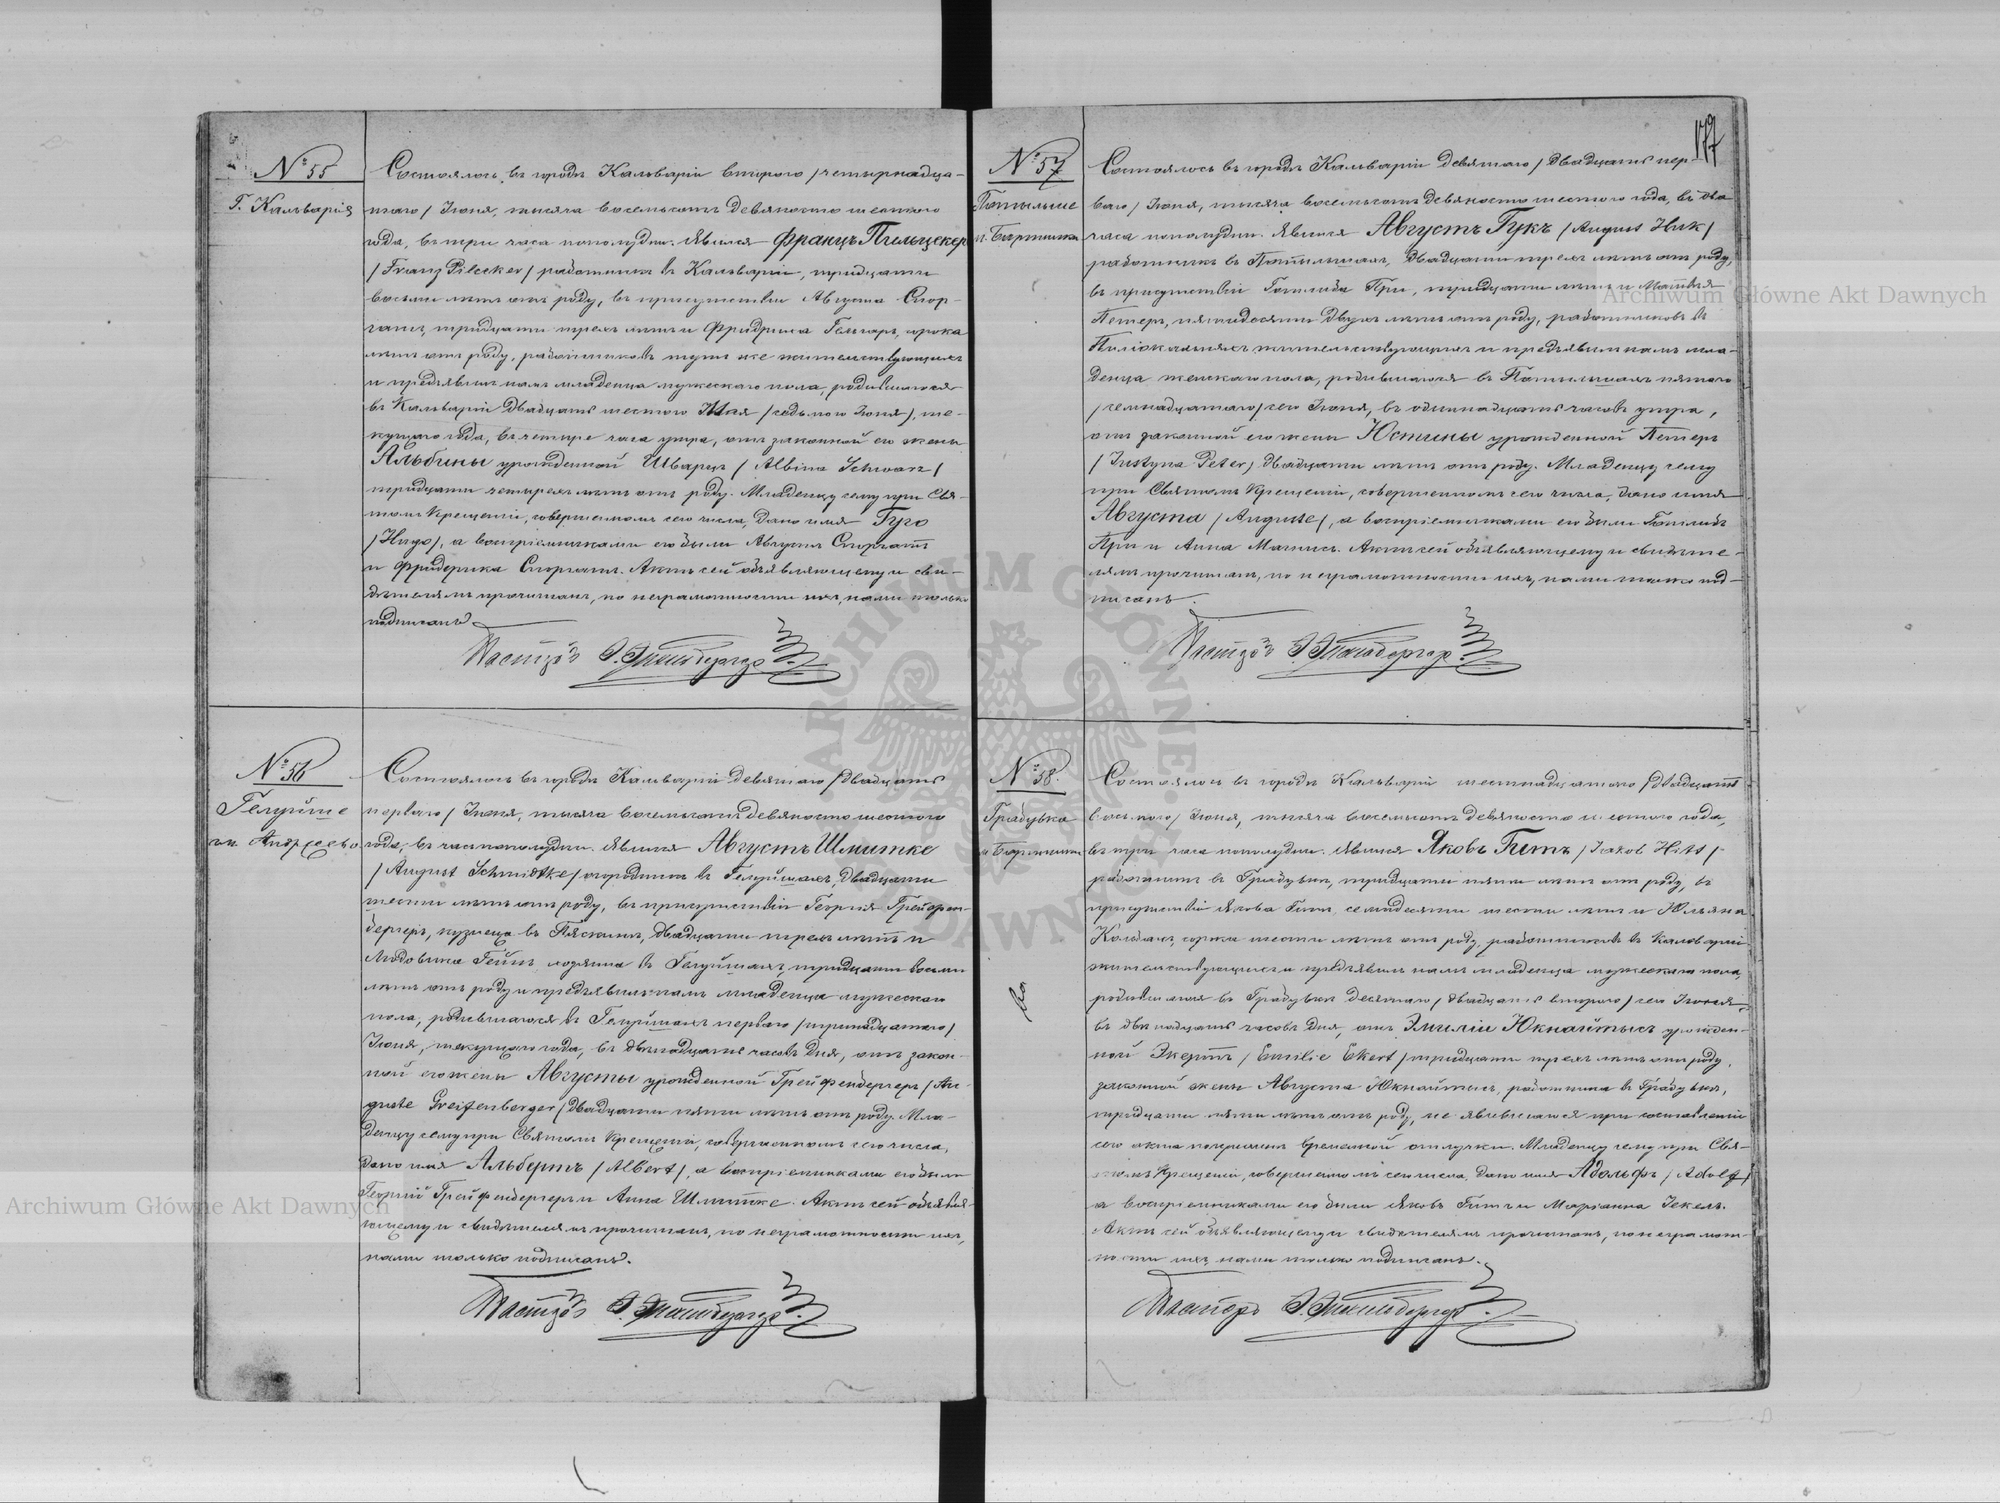 № 55
Г. Кальварія
Состоялось въ городѣ Кальваріи второго /четырнадца-
таго/ Іюня, тысяча восемьсотъ девяносто шестого
года, въ три часа пополудни. Явился Францъ Пильцекеръ
/Franz Pilecker/ работникъ въ Кальваріи, тридцати
восьми лѣтъ отъ роду, въ присутствіи Августа
тридцати трехъ лѣтъ и Фридриха сорока
лѣтъ отъ роду, работниковъ тутъ же жительствующихъ
и предъявилъ намъ младенца мужескаго пола, родившагося
въ Кальваріи двадцать шестого Мая /седьмого Іюня/, те-
кущаго года, въ четыре часа утра, отъ законной его жены
Альбины урожденной Шварцъ /Albina Schwarz/
тридцати четырехъ лѣтъ отъ роду. Младенцу сему при Свя-
томъ Крещеніи, совершенномъ сего числа, дано имя Гуго
/Hugo/, а воспріемниками его были Августъ
и Фридерика Актъ сей объявляющему и сви-
дѣтелямъ прочитанъ, по неграмотности ихъ, нами только
подписанъ.
Пасторъ
№ 56
Гелуйше
гм. Андреево
Состоялось въ городѣ Кальваріи девятаго /двадцать
перваго/ Іюня, тысяча восемьсотъ девяносто шестого
года, въ часъ пополудни. Явился Августъ Шмитке
/August Schmidtke/ огородникъ въ Гелуйшахъ, двадцати
шести лѣтъ отъ роду, въ присутствіи Георгія Грейфен-
бергеръ, кузнеца въ двадцати трехъ лѣтъ и
Людовика хозяина въ Гелуйшахъ, тридцати восьми
лѣтъ отъ роду и предъявилъ намъ младенца мужескаго
пола, родившагося въ Гелуйшахъ перваго /тринадцатаго/
Іюня, текущаго года, въ двѣнадцать часовъ дня, отъ закон-
ной его жены Августы урожденной Грейфенбергеръ /Au-
guste Greifenberger/ двадцати пяти лѣтъ отъ роду. Мла-
денцу сему при Святомъ Крещеніи, совершенномъ сего числа,
дано имя Альбертъ /Albert/, а воспріемниками его были
Георгій Грейфенбергеръ и Анна Шмитке. Актъ сей объявля-
ющему и свидѣтелямъ прочитанъ, по неграмотности ихъ,
нами только подписанъ.
Пасторъ
177
№ 57
Состоялось въ городѣ Кальваріи девятаго /двадцать пер-
ваго/ Іюня, тысяча восемьсотъ девяносто шестого года, въ два
часа пополудни. Явился Августъ Гукъ /August Huk/
работникъ въ двадцати трехъ лѣтъ отъ роду,
въ присутствіи Готлиба При, тридцати лѣтъ и Матвѣя
Петеръ, пятидесяти двухъ лѣтъ отъ роду, работниковъ въ
жительствующихъ и предъявилъ намъ мла-
денца женскаго пола, родившагося въ пятаго
/семнадцатаго/ сего Іюня, въ одиннадцать часовъ утра,
отъ законной его жены Юстины урожденной Петеръ
/Justyna Peter/ двадцати лѣтъ отъ роду. Младенцу сему
при Святомъ Крещеніи, совершенномъ сего числа, дано имя
Августа /Auguste/, а воспріемниками его были Готлибъ
При и Анна Актъ сей объявляющему и свидѣте-
лямъ прочитанъ, по неграмотности ихъ, нами только под-
писанъ.
Пасторъ
№ 58.
Градувка
Состоялось въ городѣ Кальваріи шестнадцатаго /двадцать
восьмого/ Іюня, тысяча восемьсотъ девяносто шестого года,
въ три часа пополудни. Явился Яковъ Гитъ /Jakob Hitt/
работникъ въ Градувкѣ, тридцати пяти лѣтъ отъ роду, въ
присутствіи Якова Гитъ семидесяти шести лѣтъ и Юльяна
сорока шести лѣтъ отъ роду, работниковъ въ Кальваріи
жительствующихъ и предъявилъ намъ младенца мужескаго пола,
родившагося въ Градувкѣ десятаго /двадцать второго/ сего Іюня,
въ двѣнадцать часовъ дня, отъ Эмиліи Юкнайтысъ урожден-
ной Экертъ /Emilie Ekert/ тридцати трехъ лѣтъ отъ роду,
законной жены Августа Юкнайтысъ, работника въ Градувкѣ,
тридцати пяти лѣтъ отъ роду, не явившагося при составленіи
сего акта по причинѣ временной отлучки. Младенцу сему при Свя-
томъ Крещеніи, совершенномъ сего числа, дано имя Адольфъ /Adolf/
а воспріемниками его были Яковъ Гитъ и Маріанна Текель.
Актъ сей объявляющему и свидѣтелямъ прочитанъ, по неграмот-
ности ихъ, нами только подписанъ.
Пасторъ
Archiwum Główne Akt Dawnych
Archiwum Główne Akt Dawnych
ARCHIWUM GŁÓWNE AKT DAWNYCH